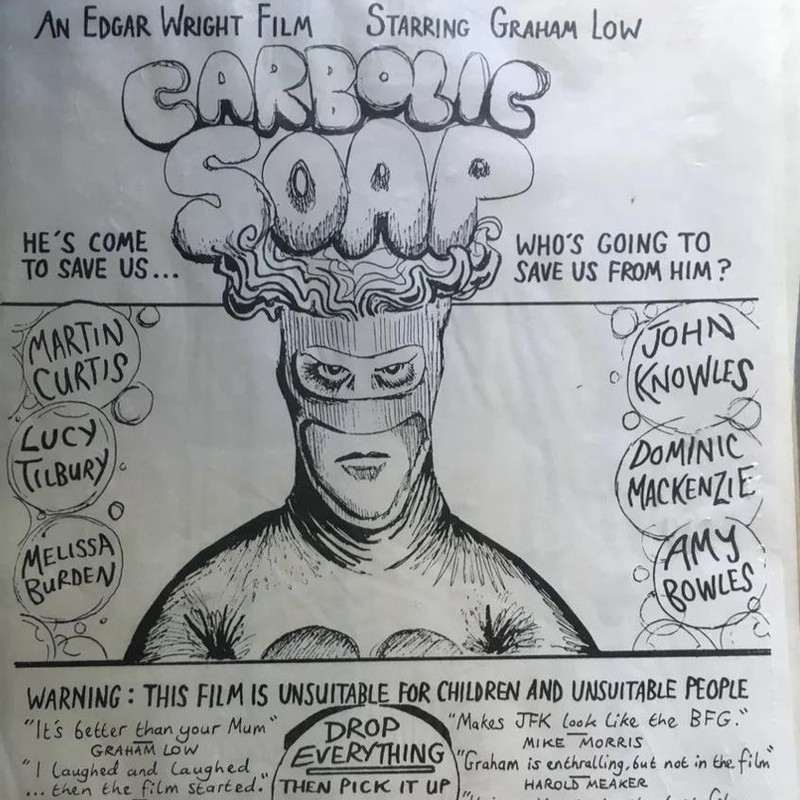 AN EDGAR WRIGHT FILM STARRING GRAHAM LOW
CARBOLIC
SOAP
HE'S COME
TO SAVE US...
WHO'S GOING TO
SAVE US FROM HIM?
MARTIN
CURTIS
LUCY
TILBURY
MELISSA
BURDEN
JOHN
KNOWLES
DOMINIC
MACKENZIE
AMY
BOWLES
WARNING: THIS FILM IS UNSUITABLE FOR CHILDREN AND UNSUITABLE PEOPLE
"It's better than your Mum"
GRAHAM LOW
"I laughed and laughed
... then the film started."
DROP
EVERYTHING
THEN PICK IT UP
"Makes JFK look like the BFG."
MIKE MORRIS
"Graham is enthralling, but not in the film"
HAROLD MEAKER